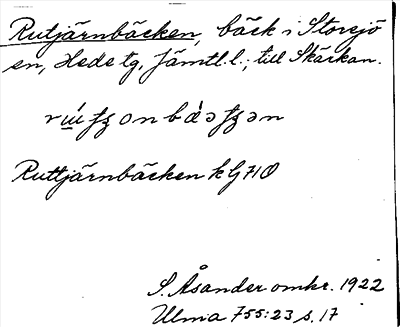 Rutjärnbäcken, bäck i Storsjö
en, Hede tg, Jämtl. l.; till Skärkan.
Ruttjärnbäcken k G 71 O
S. Åsander omkr. 1922
Ulma 755:23 s. 17